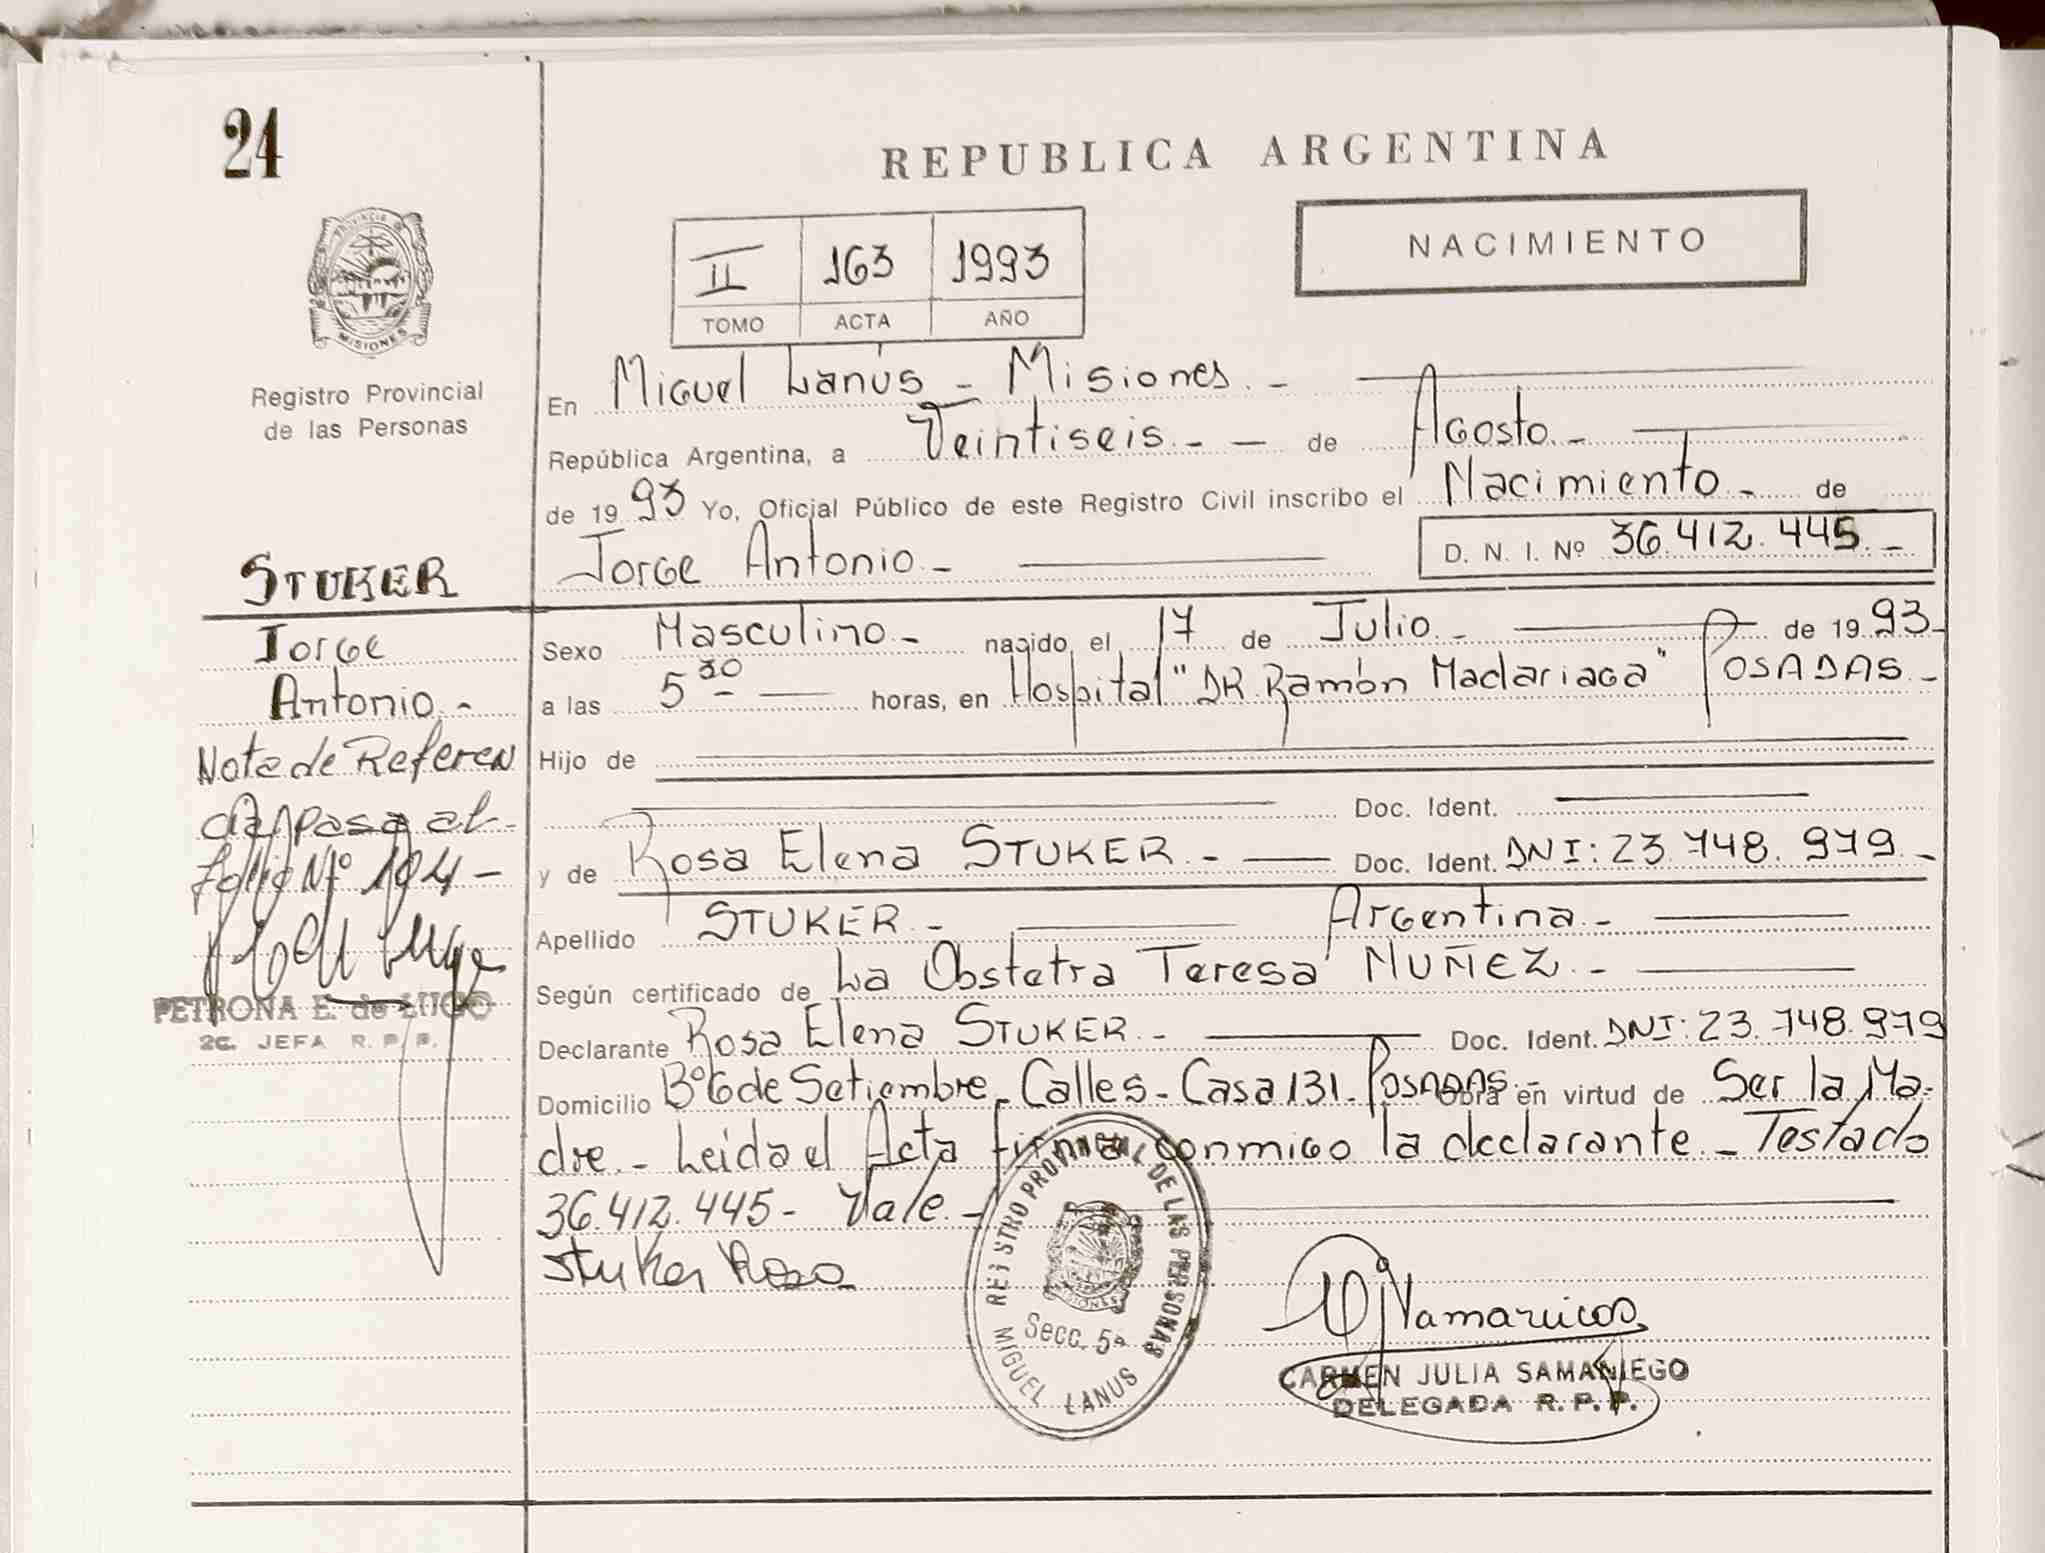 24
REPUBLICA ARGENTINA
NACIMIENTO
II 163 1993
TOMO ACTA AÑO
PROVINCIA DE MISIONES
Registro Provincial
de las Personas
En Miguel Lanús - Misiones. -
República Argentina, a Veintiseis. - - de Agosto. -
de 1993 Yo, Oficial Público de este Registro Civil inscribo el Nacimiento. - de
Jorge Antonio. - D. N. I. Nº 36.412.445. -
STUKER
Jorge
Antonio. -
Nota de Referen
cia, pasa al-
folio Nº 194 -
PETRONA E. de LUGO
2C. JEFA R. P. P.
Sexo Masculino. - nacido el 17 de Julio. - de 1993-
a las 5 30 - horas, en Hospital "DR. Ramón Madariaga" POSADAS. -
Hijo de
Doc. Ident.
y de Rosa Elena STUKER. - Doc. Ident. DNI: 23.748.979. -
Apellido STUKER. - Argentina. -
Según certificado de La Obstetra Teresa NUÑEZ. -
Declarante Rosa Elena STUKER. - Doc. Ident. DNI: 23.748.979
Domicilio Bº 6 de Setiembre - Calles - Casa 131. POSADAS. - Obra en virtud de Ser la Ma-
dre. - Leida el Acta firma conmigo la declarante. - Testado
36.412.445 - Vale. -
Stuker Rosa
REGISTRO PROVINCIAL DE LAS PERSONAS
MISIONES
Secc. 5a
MIGUEL LANUS
CARMEN JULIA SAMANIEGO
DELEGADA R. P. P.